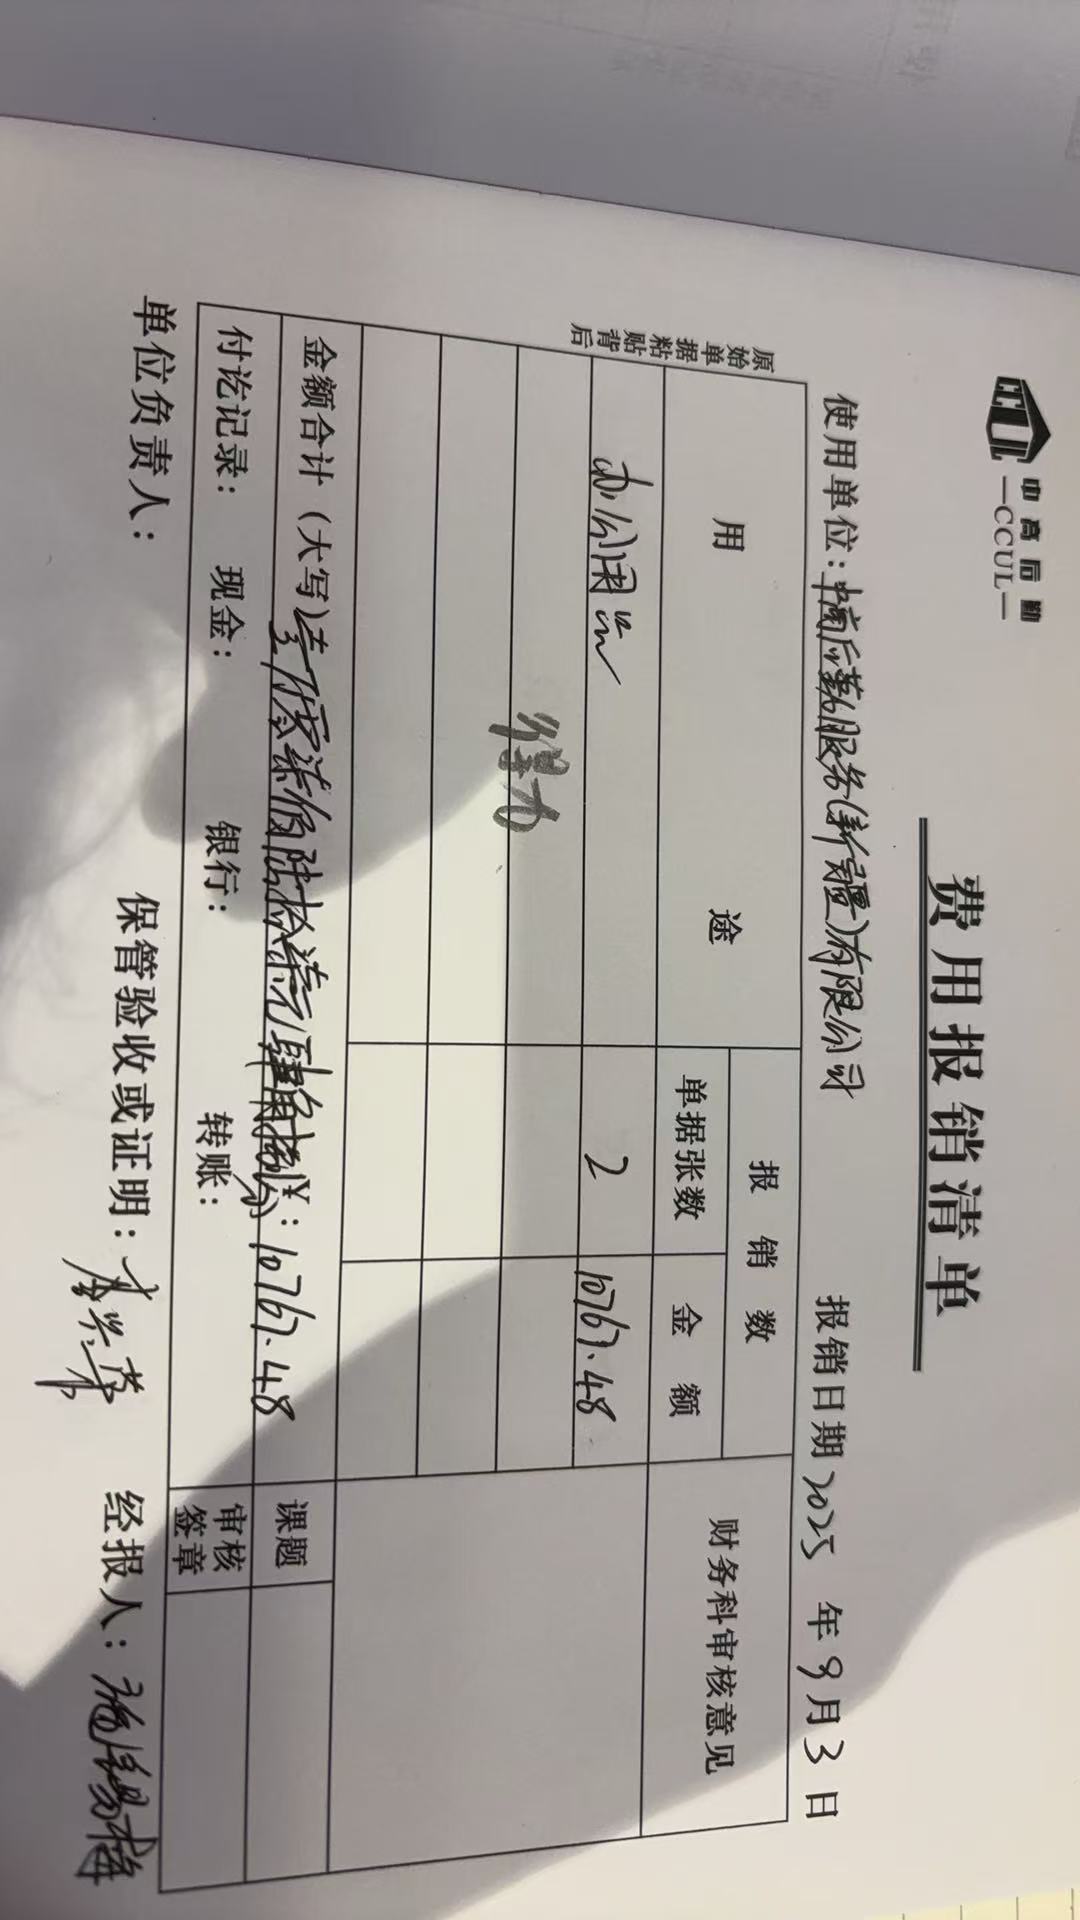 中高后勤
—CCUL—
费用报销清单
使用单位：中高后勤服务(新疆)有限公司 报销日期2025年9月3日
用途 报销数 财务科审核意见
单据张数 金额
办公用品 2 10767.48
金额合计（大写）壹万零柒佰陆拾柒元肆角捌分 ¥：10767.48 课题
付讫记录： 现金： 银行： 转账： 审核签章
单位负责人： 保管验收或证明： 经报人：
原始单据粘贴背后